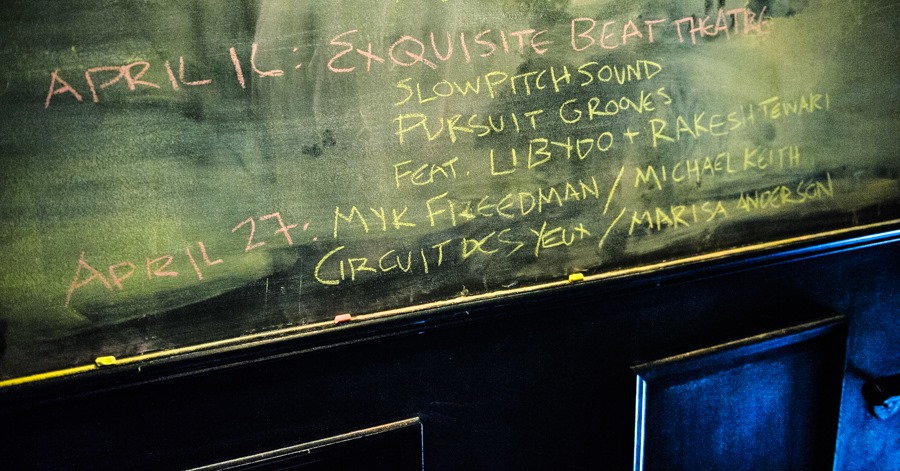 APRIL 16: EXQUISITE BEAT THEATRE
SLOWPITCHSOUND
PURSUIT GROOVES
FEAT. LIBYDO + RAKESH TEWARI
APRIL 27: MYK FREEDMAN / MICHAEL KEITH
CIRCUIT DES YEUX / MARISA ANDERSON